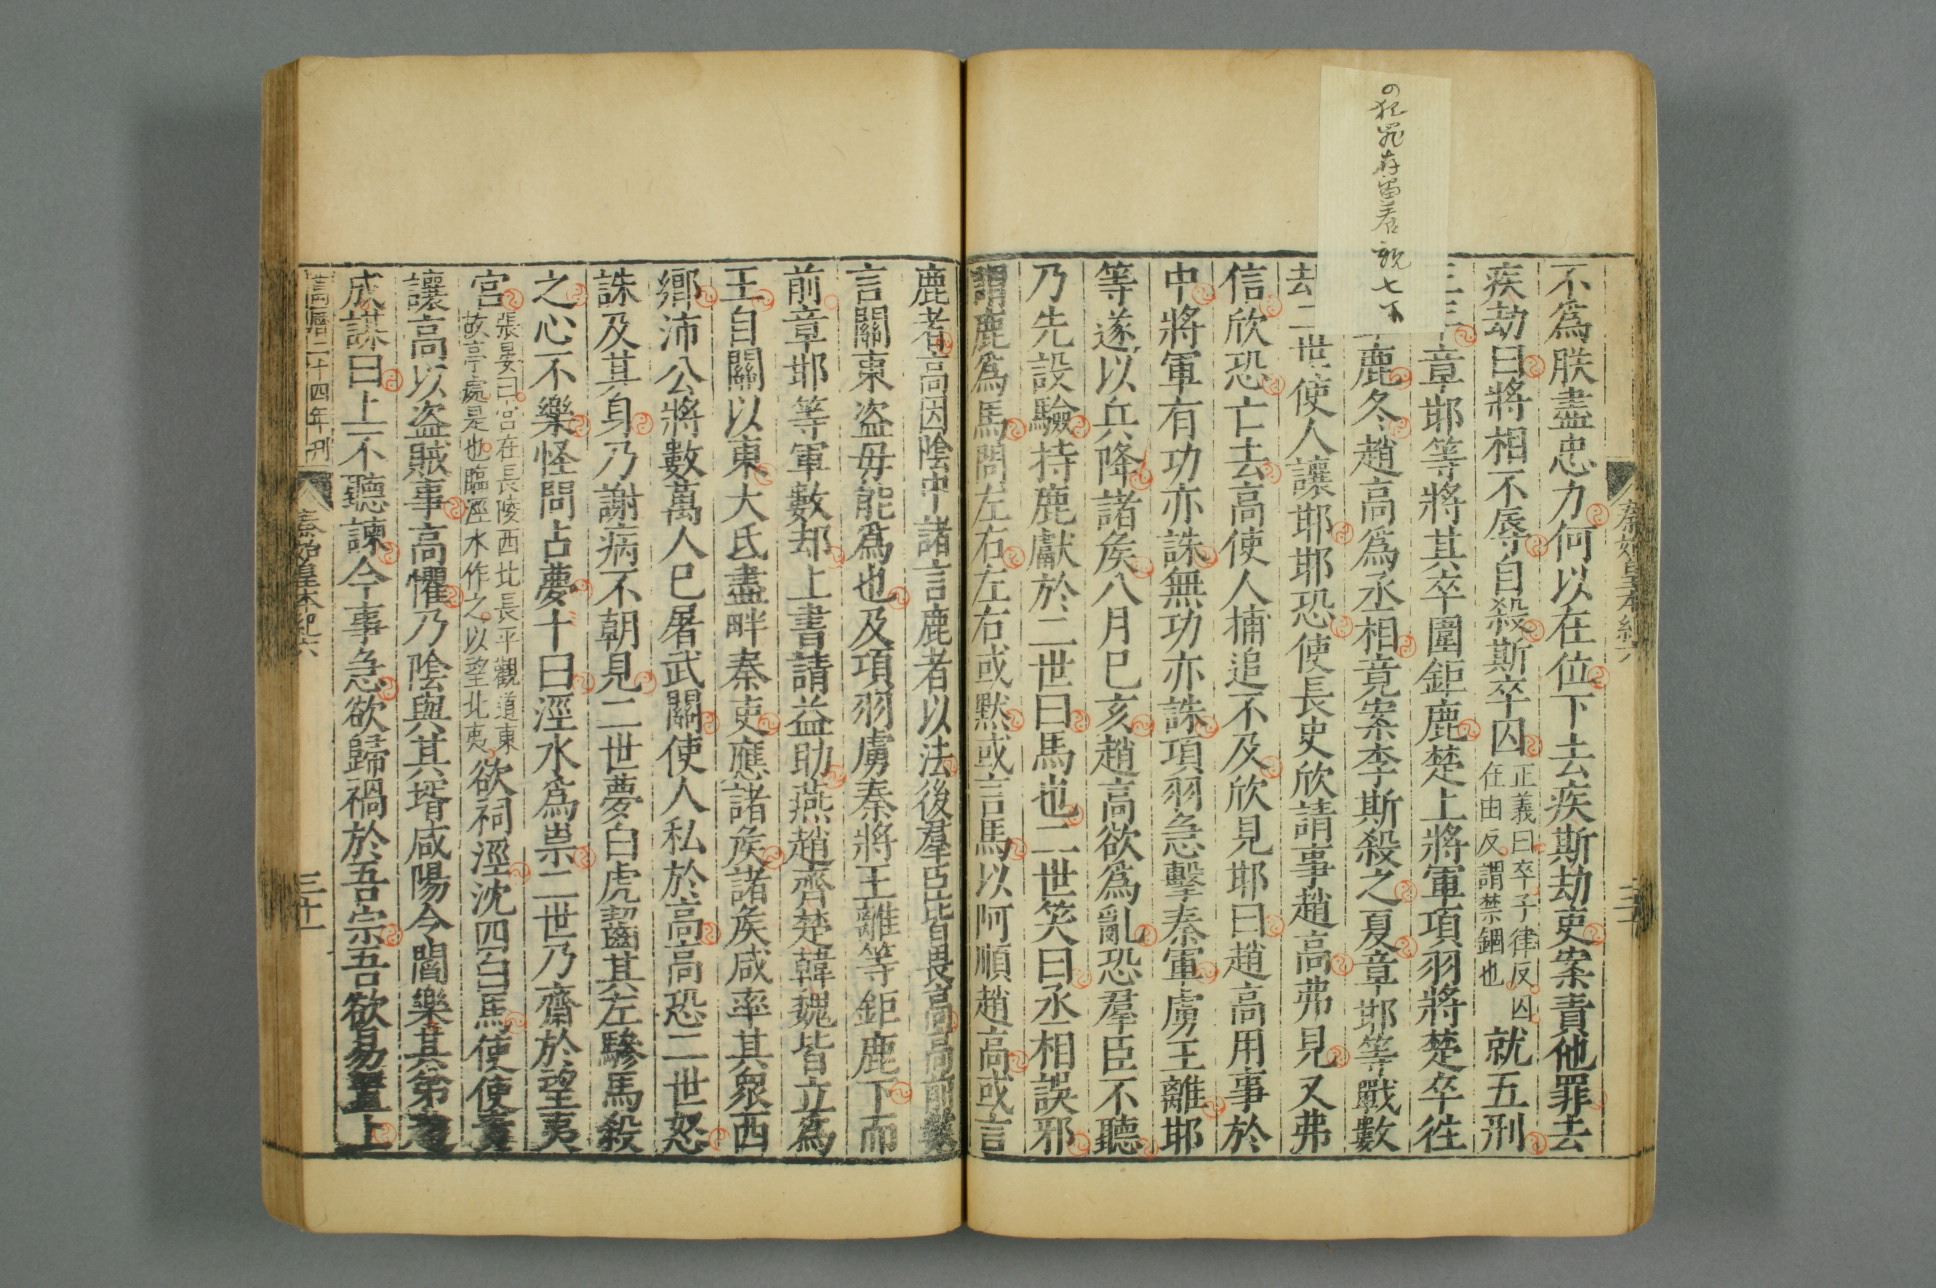 秦始皇本紀六
不爲朕盡忠力何以在位下去疾斯劫吏案責他罪去
疾劫曰將相不辱自殺斯卒囚正義曰卒子律反囚在由反謂禁錮也就五刑
三年章邯等將其卒圍鉅鹿楚上將軍項羽將楚卒徃
鹿冬趙高爲丞相竟案李斯殺之夏章邯等戰數
却二世使人讓邯邯恐使長史欣請事趙高弗見又弗
信欣恐亡去高使人捕追不及欣見邯曰趙高用事於
中將軍有功亦誅無功亦誅項羽急擊秦軍虜王離邯
等遂以兵降諸侯八月巳亥趙高欲爲亂恐羣臣不聽
乃先設驗持鹿獻於二世曰馬也二世笑曰丞相誤邪
謂鹿爲馬問左右左右或黙或言馬以阿順趙高或言
鹿者高因陰中諸言鹿者以法後羣臣皆畏高高前數
言關東盗毋能爲也及項羽虜秦將王離等鉅鹿下而
前章邯等軍數却上書請益助燕趙齊楚韓魏皆立爲
王自關以東大氐盡畔秦吏應諸侯諸侯咸率其衆西
鄉沛公將數萬人巳屠武關使人私於高高恐二世怒
誅及其身乃謝病不朝見二世夢白虎齧其左驂馬殺
之心不樂怪問占夢卜曰涇水爲祟二世乃齋於望夷
宮張晏曰宮在長陵西北長平觀道東故亭處是也臨涇水作之以望北夷欲祠涇沈四白馬使使責
讓高以盗賊事高懼乃陰與其壻咸陽令閻樂其弟趙
成謀曰上不聽諫今事急欲歸禍於吾宗吾欲易置上
萬曆二十四年刊
秦始皇本紀六
三十一